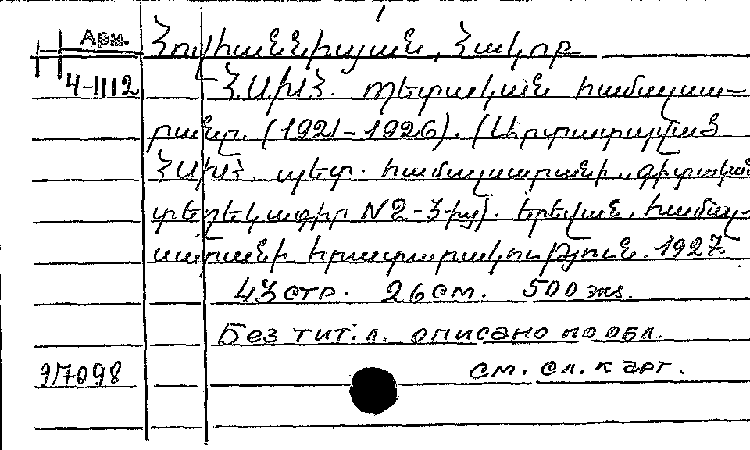 Арм. Հովհաննիսյան, Հակոբ
4-1112 ՀՍԽՀ. Պետական համալսա-
րանը. (1921-1926). (Արտատպված
ՀՍԽՀ. պետ. համալսարանի գիտական
տեղեկագիր N 2-3-ից). Երևան. համալ-
սարանի հրատարակություն. 1927.
43 стр. 26 см. 500 экз.
Без тит. л. описано по обл.
917098 см. сл. карт.